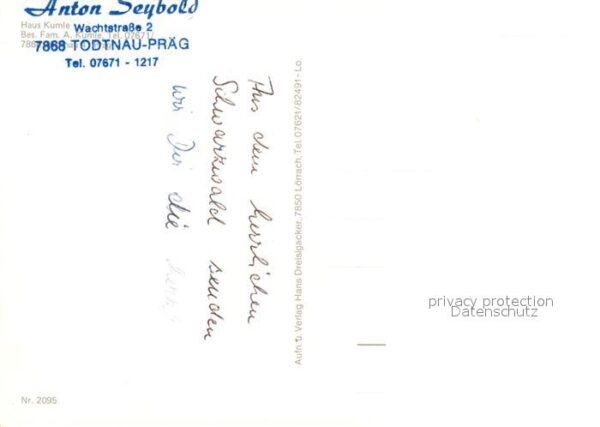 Anton Seybold
Wachtstraße 2
7868 TODTNAU-PRÄG
Tel. 07671 - 1217
Haus Kumle
Bes. Fam. A. Kumle, Tel. 07671/
Aus dem herrlichen
Schwarzwald senden
wir Dir die
Aufn. u. Verlag Hans Dreislgacker, 7850 Lörrach, Tel. 07621/82491 - Lo.
privacy protection
Datenschutz
Nr. 2095